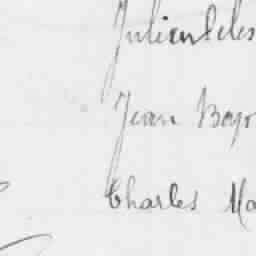 Julien Deles
Jean Bayo
Charles Ma